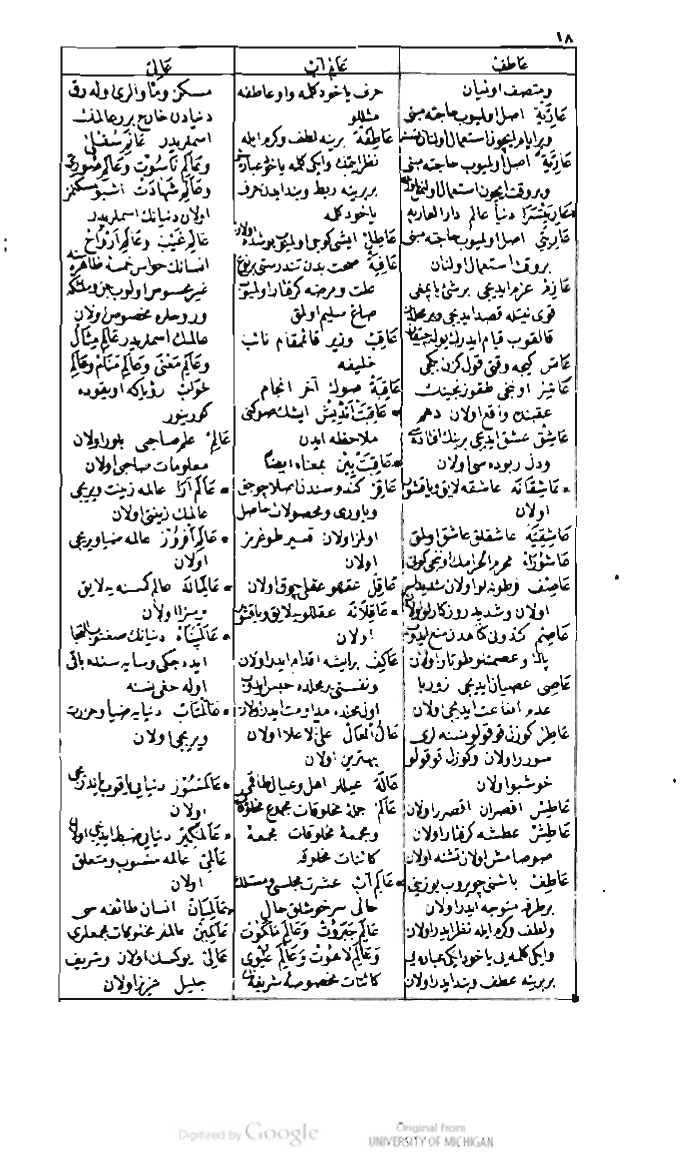 ١٨
عاطف
ومتصف اولنيان
عَارِيَّة اصل اولميوب حاجته مبنى
ويرايام ايچون استعمال اولنان
عَارِيَةً اصل اولميوب حاجته مبنى
وبروقت ايچون استعمال
عَارِيَتْسَرَا دنيا عالم دار العاريه
عَارِيَتِي اصل اولميوب حاجته مبنى
بروقت استعمال اولنان
عَازِمْ عزم ايديجى برشئ يا پمغى
قوى نيتله قصد ايديجى وبرمحله
قالقوب قيام ايدرك يوله
عاشر كيجه وقتى قول كزن
عَاشِرْ اوننجى طقوزنجينك
عقبنده واقع اولان دهم
عَاشِقْ عشق ايديجى برينك افتاده
ودل ربوده سى اولان
• عَاشِقَانَه عاشقه لايق وياقشور
اولان
عَاشِقِيَّه عاشقلق عاشق اولمق
عَاشُورَا محرم الحرامك اوننجى كونى
عَاصِفْ فرطونه لو اولان شديد
اولان وشديد روزكار
عَاصِمْ كندونى كناهدن منع ايدوب
پاك وعصمتلو طوتار اولان
عَاصِى عصيان ايديجى زوربا
عدم اطاعت ايديجى اولان
عَاطِرْ كوزل قوقولو نسنه لرى
سور اولان وكوزل قوقولو
خوشبو اولان
عَاطِسْ اقصران اقصرر اولان
عَاطِشْ عطشه كرفتار اولان
صوصامش اولان تشنه اولان
عَاطِفْ باشنى چويروب يوزينى
برطرفه متوجه ايدر اولان
ولطف وكرم ايله نظر ايدر اولان
وايكى كلمه يى ياخود ايكى عباره يى
بربرينه عطف وبند ايدر اولان
عالم آب
حرف ياخود كلمه واو عاطفه
مثللو
عَاطِفَه برينه لطف وكرم ايله
نظر ايتمك وايكى كلمه ياخود
بربرينه ربط وبند ايدن حرف
ياخود كلمه
عَاطِلْ ايشى كوجى اولميوب بوشده
عَافِيَة صحت بدن تندرستى
علت ومرضه كرفتار اولميوب
صاغ سليم اولمق
عَاقِبْ وزير قائمقام نائب
خليفه
عَاقِبَة صوك آخر انجام
• عَاقِبَتْ اَنْدِيشْ ايشك صوكنى
ملاحظه ايدن
• عَاقِبَتْ بِينْ بمعناه ايضا
عَاقِرْ كندوسندن اصلا چوجق
وياورى ومحصولات حاصل
اولمز اولان قيسير طوغرمز
اولان
عَاقِلْ عقللو عقلى چوق اولان
• عَاقِلَانَه عقللويه لايق وياقشور
اولان
عَاكِفْ برايشه اقدام ايدر اولان
ونفسنى برمحلده حبس ايدوب
اول محلده مداومت ايدر اولان
عَالُ الْعَالْ على الاعلا اولان
بهترين اولان
عَالَه عيللر اهل وعيال طاقمى
عَالَمْ جمله مخلوقات مجموع
ومجمعه مخلوقات مجمعه
كائنات مخلوقه
• عَالَمِ آبْ عشرت مجلسى
حالى سرخوشلق حالى
عَالَمِ جَبَرُوتْ وَعَالَمِ مَلَكُوتْ
وَعَالَمِ لَاهُوتْ وَعَالَمِ عُلْوِى
كائنات مخصوصۀ شريفه
عالى
مسكن ومأواى اوله رق
دنيادن خارج برر عالمك
اسملريدر عَالَمِ سُفْلِى
وَعَالَمِ نَاسُوتْ وَعَالَمِ صُورَتْ
وعَالَمِ شَهَادَتْ اشبو مسكنمز
اولان دنيانك اسملريدر
عَالَمِ غَيْبْ وعَالَمِ اَرْوَاحْ
انسانك حواس خمسۀ ظاهره سنه
غير محسوس اولوب جن وملكه
وروحلره مخصوص اولان
عالمك اسملريدر عَالَمِ مِثَالْ
وعَالَمِ مَعْنَى وعَالَمِ مَنَامْ وعَالَمِ
خَوَابْ رؤيا كه اويقوده
كورينور
عَالِمْ علم صاحبى بيلور اولان
معلومات صاحبى اولان
• عَالَمْ آرَا عالمه زينت ويريجى
عالمك زينتى اولان
• عَالَمْ اَفْرُوزْ عالمه ضيا ويريجى
اولان
• عَالِمَانَه عالم كمسنه يه لايق
وسزا اولان
• عَالَمْپَنَاهْ دنيانك صغنوب التجا
ايده جكى وسايه سنده باقى
اوله جغى نسنه
• عَالَمْتَابْ دنيايه ضيا وحرارت
ويريجى اولان
• عَالَمْسُوزْ دنيايى ياقوب ياندريجى
اولان
• عَالَمْگِيرْ دنيايى ضبط ايديجى اولان
عَالَمِى عالمه منسوب ومتعلق
اولان
• عَالَمِيَانْ انسان طائفه سى
عَالَمِينْ عالملر مخلوقات مجمعلرى
عَالِى يوكسك اولان وشريف
جليل عزيز اولان
Digitized by Google
Original from
UNIVERSITY OF MICHIGAN